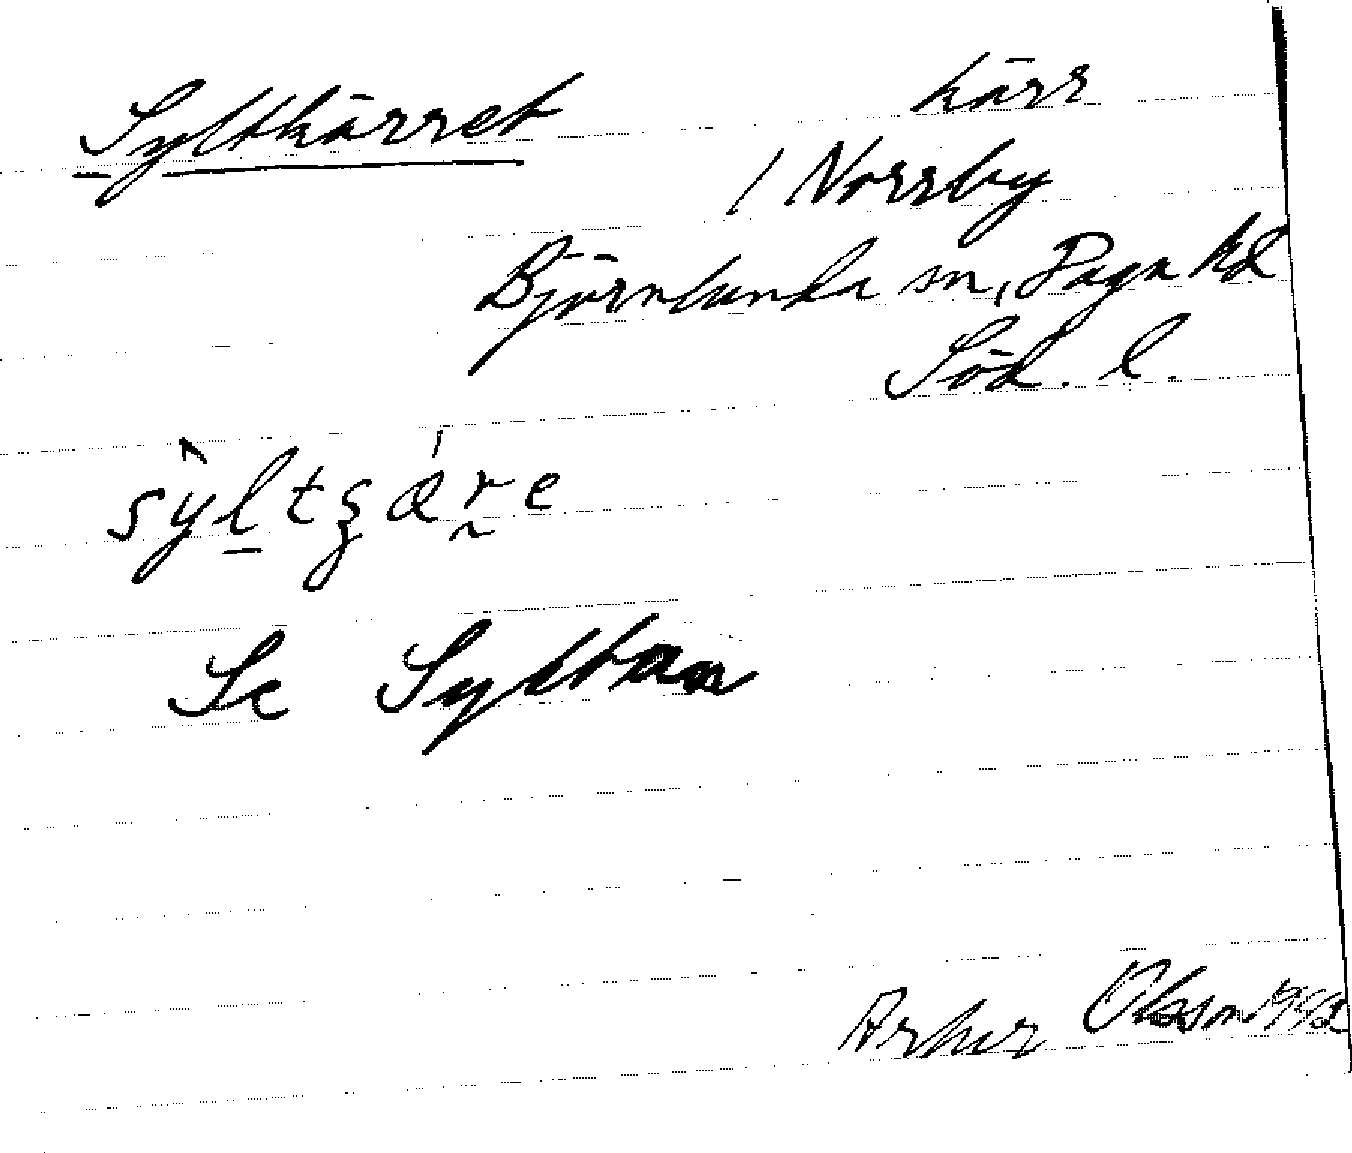 Syltkärret kärr
/ Norrby
Björnlunda sn, Daga hd
Söd. l.
Se Syltan
Arthur Olsson 1942